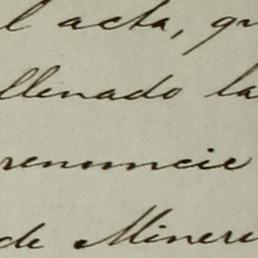 l acta, qu
llenado la
renuncie
de Minerí